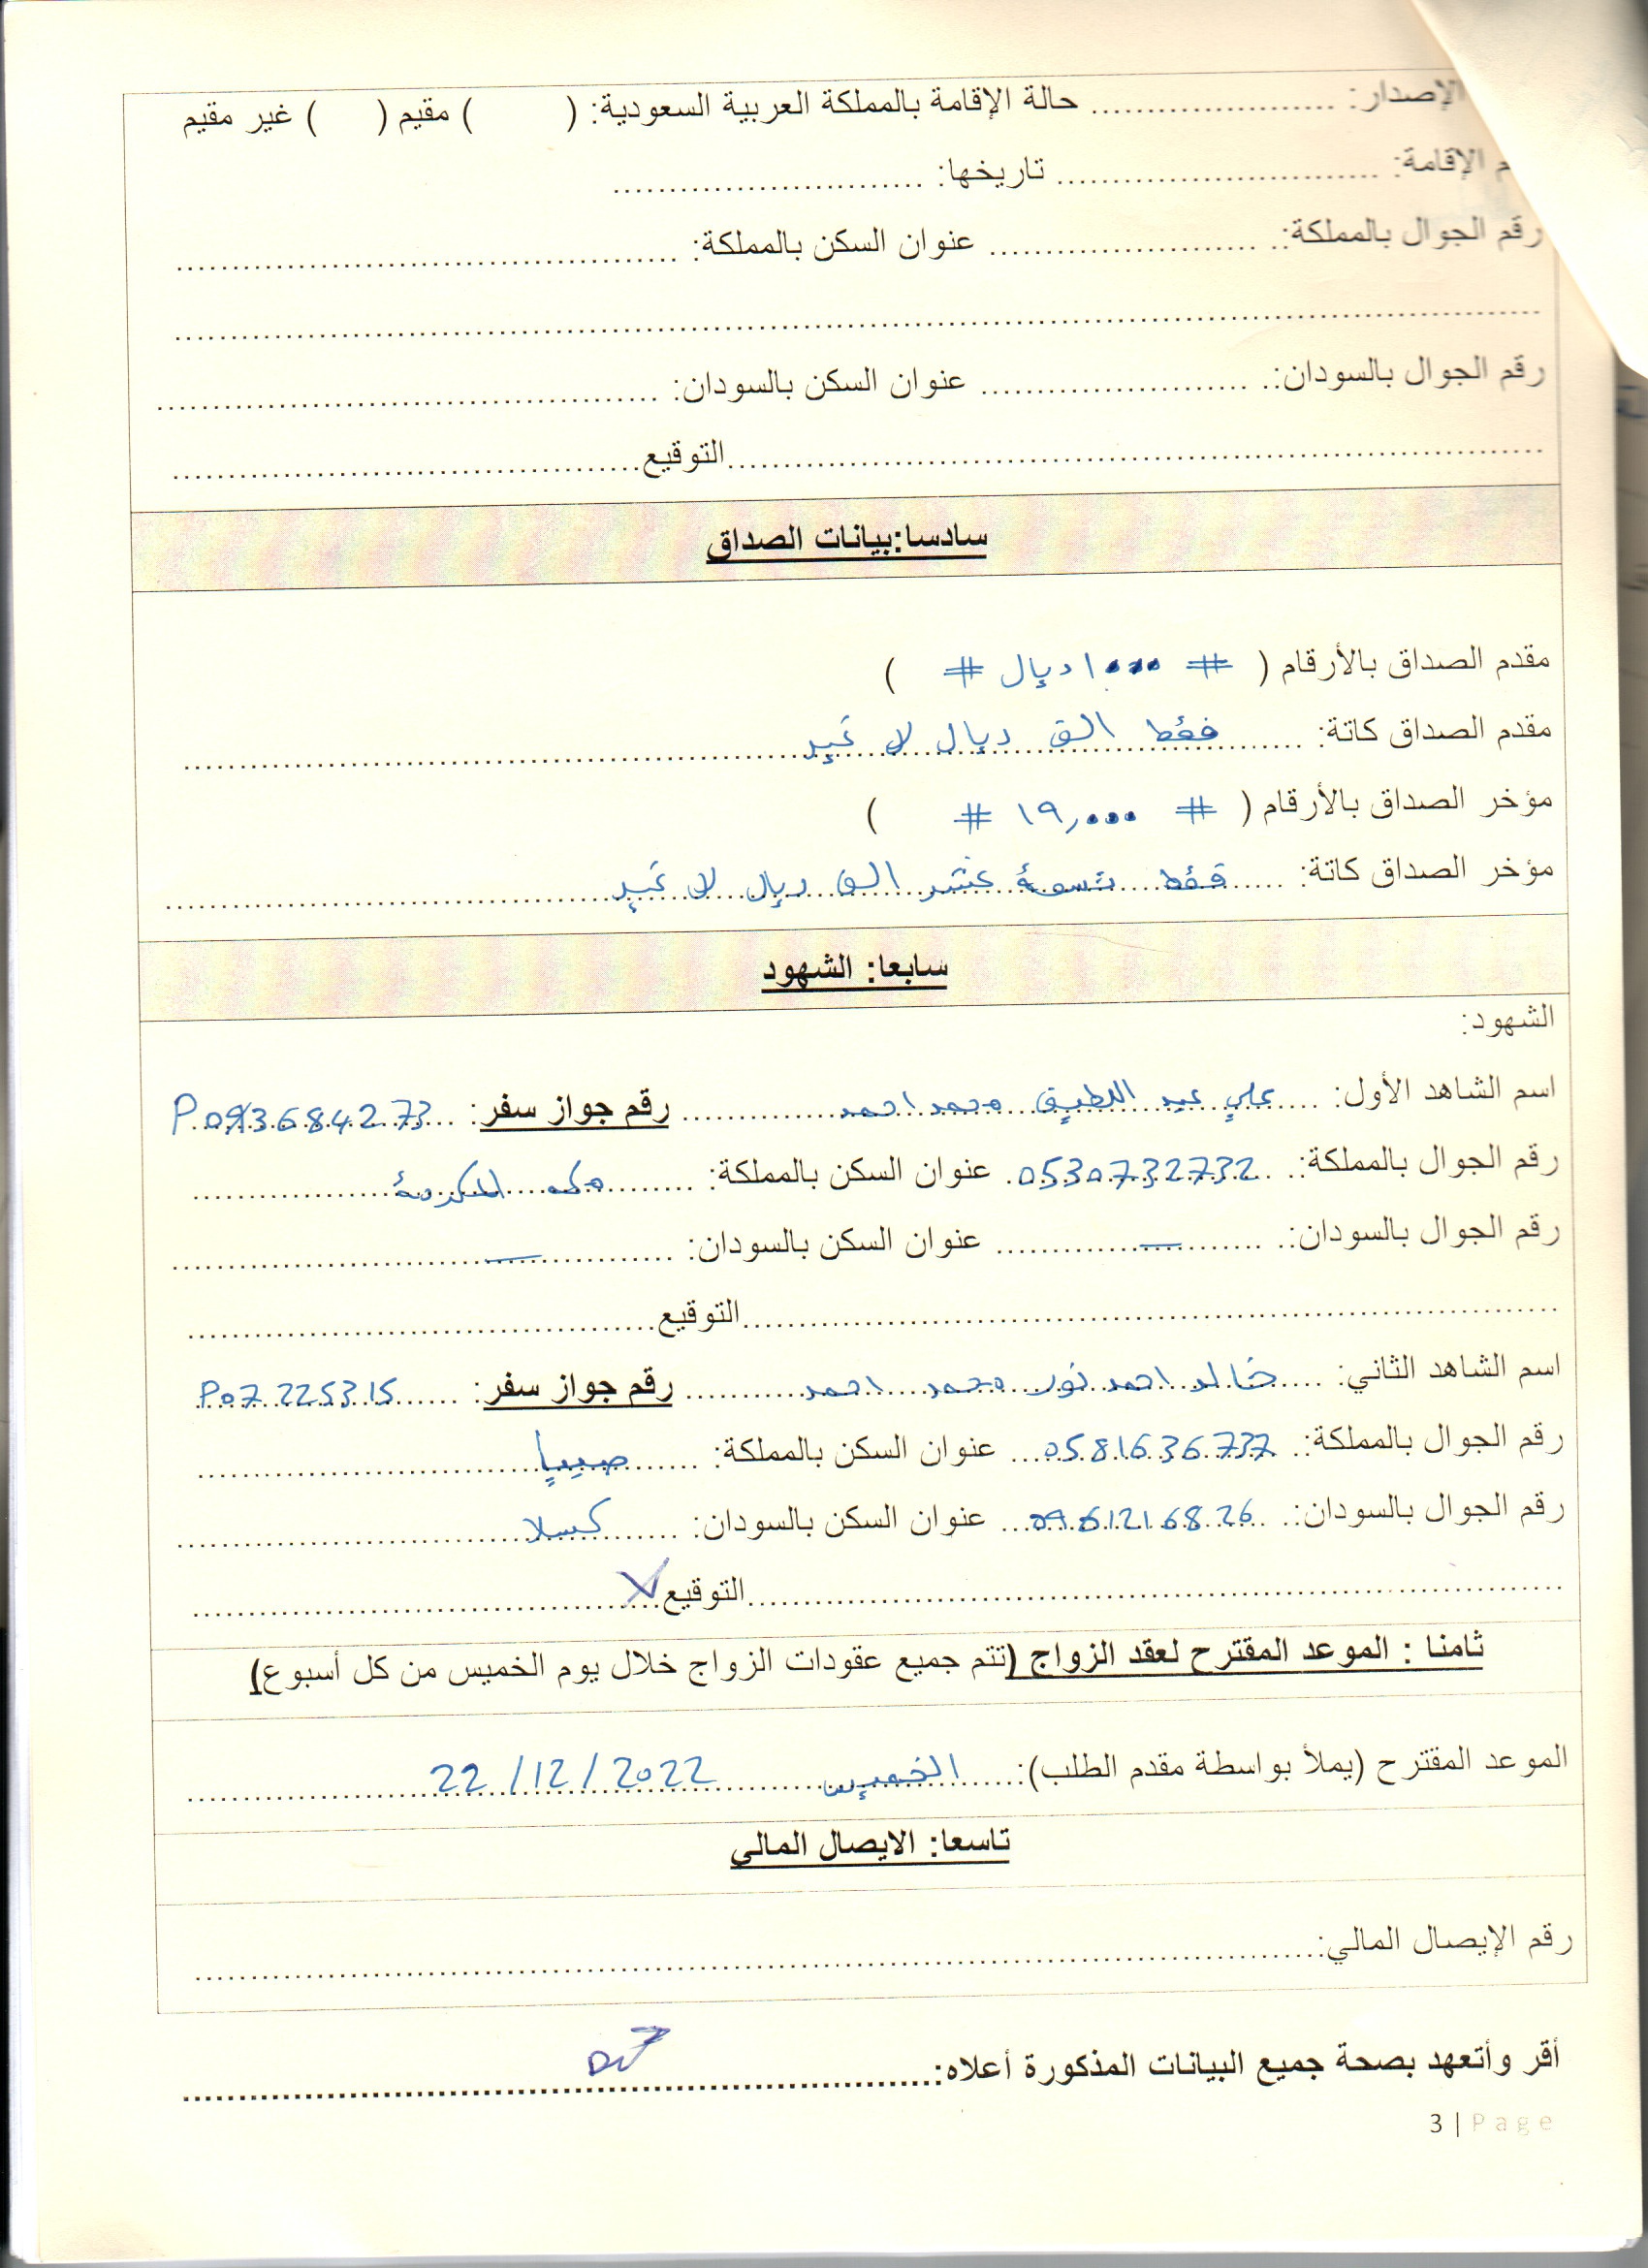 الإصدار: ...................... حالة الإقامة بالمملكة العربية السعودية: (      ) مقيم (    ) غير مقيم
الإقامة: ............................. تاريخها: ............................
رقم الجوال بالمملكة:. ........................ عنوان السكن بالمملكة: .............................................
..........................................................................................................................
رقم الجوال بالسودان:. ........................ عنوان السكن بالسودان: .............................................
.........................................................................التوقيع..........................................
سادسا:بيانات الصداق
مقدم الصداق بالأرقام ( # ١٠٠٠ ريال # )
مقدم الصداق كاتة: فقط الف ريال لا غير
مؤخر الصداق بالأرقام ( # ١٩,٠٠٠ # )
مؤخر الصداق كاتة: فقط تسعة عشر الف ريال لا غير
سابعا: الشهود
الشهود:
اسم الشاهد الأول: علي عبد اللطيف محمد احمد رقم جواز سفر:
رقم الجوال بالمملكة:. 0530732732 عنوان السكن بالمملكة: مكه المكرمة
رقم الجوال بالسودان:. — عنوان السكن بالسودان: —
.........................................................................التوقيع..........................................
اسم الشاهد الثاني: خالد احمد نور محمد احمد رقم جواز سفر: P07225315
رقم الجوال بالمملكة:. 0581636737 عنوان السكن بالمملكة: صبيا
رقم الجوال بالسودان:. 0961216826 عنوان السكن بالسودان: كسلا
.........................................................................التوقيع..........................................
ثامنا : الموعد المقترح لعقد الزواج (تتم جميع عقودات الزواج خلال يوم الخميس من كل أسبوع)
الموعد المقترح (يملأ بواسطة مقدم الطلب): الخميس 22/12/2022
تاسعا: الايصال المالي
رقم الإيصال المالي:....................................................................................................
أقر وأتعهد بصحة جميع البيانات المذكورة أعلاه:...................................................................
3 | Page